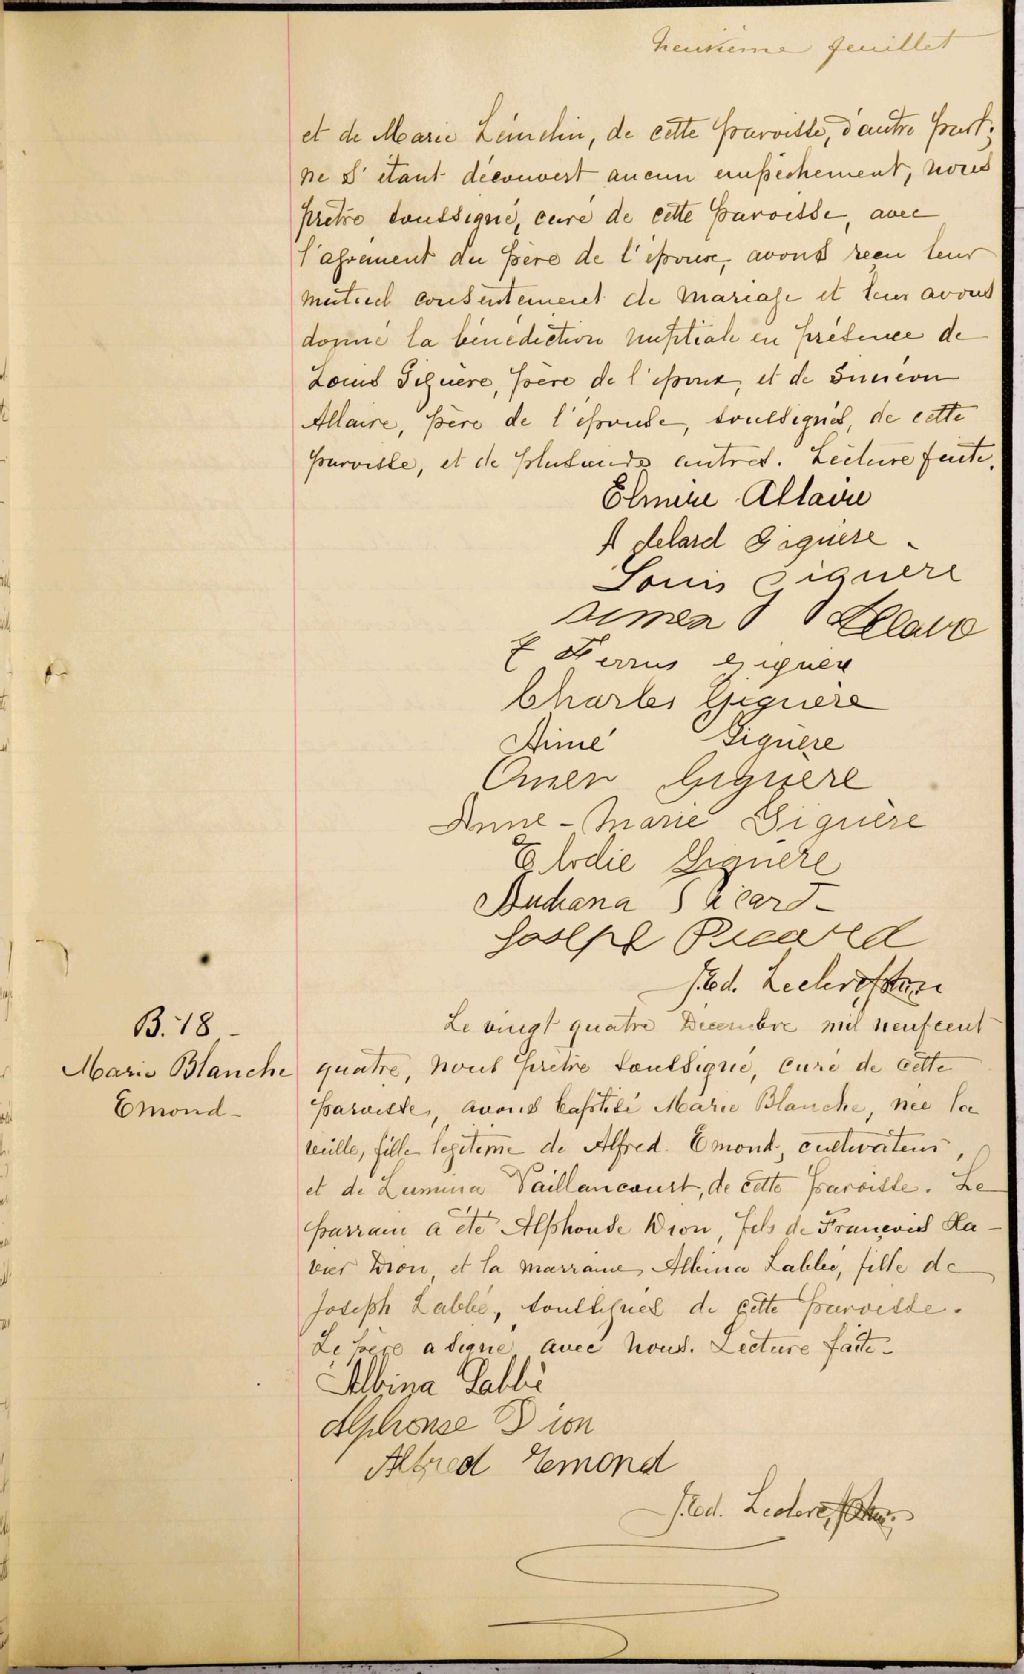 Neuvième feuillet
et de Marie Lémelin, de cette paroisse, d'autre part;
ne s'étant découvert aucun empêchement, nous
prêtre soussigné, curé de cette paroisse, avec
l'agrément du père de l'époux, avons reçu leur
mutuel consentement de mariage et leur avons
donné la bénédiction nuptiale en présence de
Louis Giguère, père de l'époux, et de Siméon
Allaire, père de l'épouse, soussignés, de cette
paroisse, et de plusieurs autres. Lecture faite.
Elmire Allaire
Adelard Giguère
Louis Giguère
Simeon
Ferrus Giguère
Charles Giguère
Aimé Giguère
Omer Giguère
Anne-Marie Giguère
Elodie Giguère
Picard
Joseph Picard
J. Ed. Leclerc, ptre
B. 18
Marie Blanche
Emond
Le vingt quatre Décembre mil neuf cent
quatre, nous prêtre soussigné, curé de cette
paroisse, avons baptisé Marie Blanche, née la
veille, fille légitime de Alfred Emond, cultivateur,
et de Lumina Vaillancourt, de cette paroisse. Le
parrain a été Alphonse Dion, fils de François Xa-
vier Dion, et la marraine, Albina Labbé, fille de
Joseph Labbé, soussignés de cette paroisse.
Le père a signé avec nous. Lecture faite.
Albina Labbè
Alphonse Dion
Alfred Emond
J. Ed. Leclerc, ptre